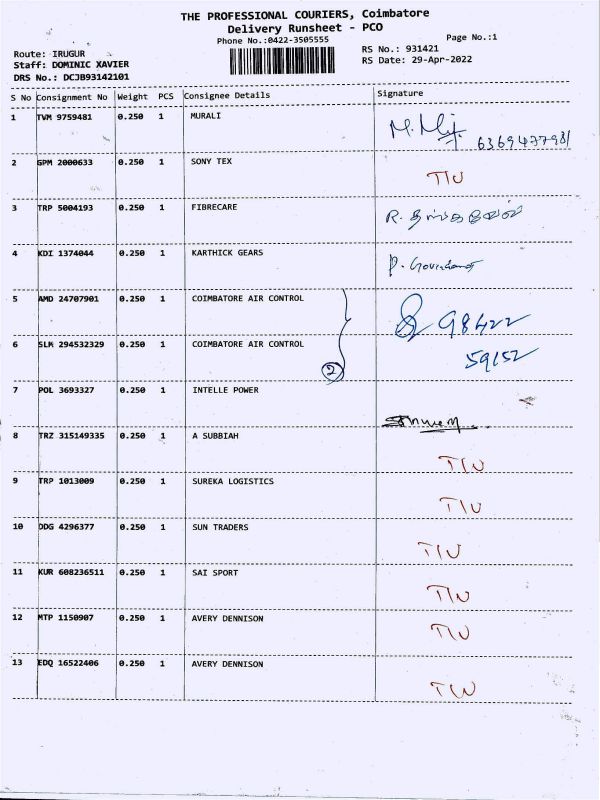 THE PROFESSIONAL COURIERS, Coimbatore
Delivery Runsheet - PCO
Phone No.:0422-3505555
Page No.:1
Route: IRUGUR
RS No.: 931421
Staff: DOMINIC XAVIER
RS Date: 29-Apr-2022
DRS No.: DCJB93142101
S No Consignment No Weight PCS Consignee Details Signature
1 TVM 9759481 0.250 1 MURALI
6369477981
2 GPM 2000633 0.250 1 SONY TEX T/U
3 TRP 5004193 0.250 1 FIBRECARE R.
4 KDI 1374044 0.250 1 KARTHICK GEARS
5 AMD 24707901 0.250 1 COIMBATORE AIR CONTROL 98422
6 SLM 294532329 0.250 1 COIMBATORE AIR CONTROL 59152
2
7 POL 3693327 0.250 1 INTELLE POWER
8 TRZ 315149335 0.250 1 A SUBBIAH T/U
9 TRP 1013009 0.250 1 SUREKA LOGISTICS T/U
10 DDG 4296377 0.250 1 SUN TRADERS T/U
11 KUR 608236511 0.250 1 SAI SPORT T/U
12 MTP 1150907 0.250 1 AVERY DENNISON T/U
13 EDQ 16522406 0.250 1 AVERY DENNISON T/U